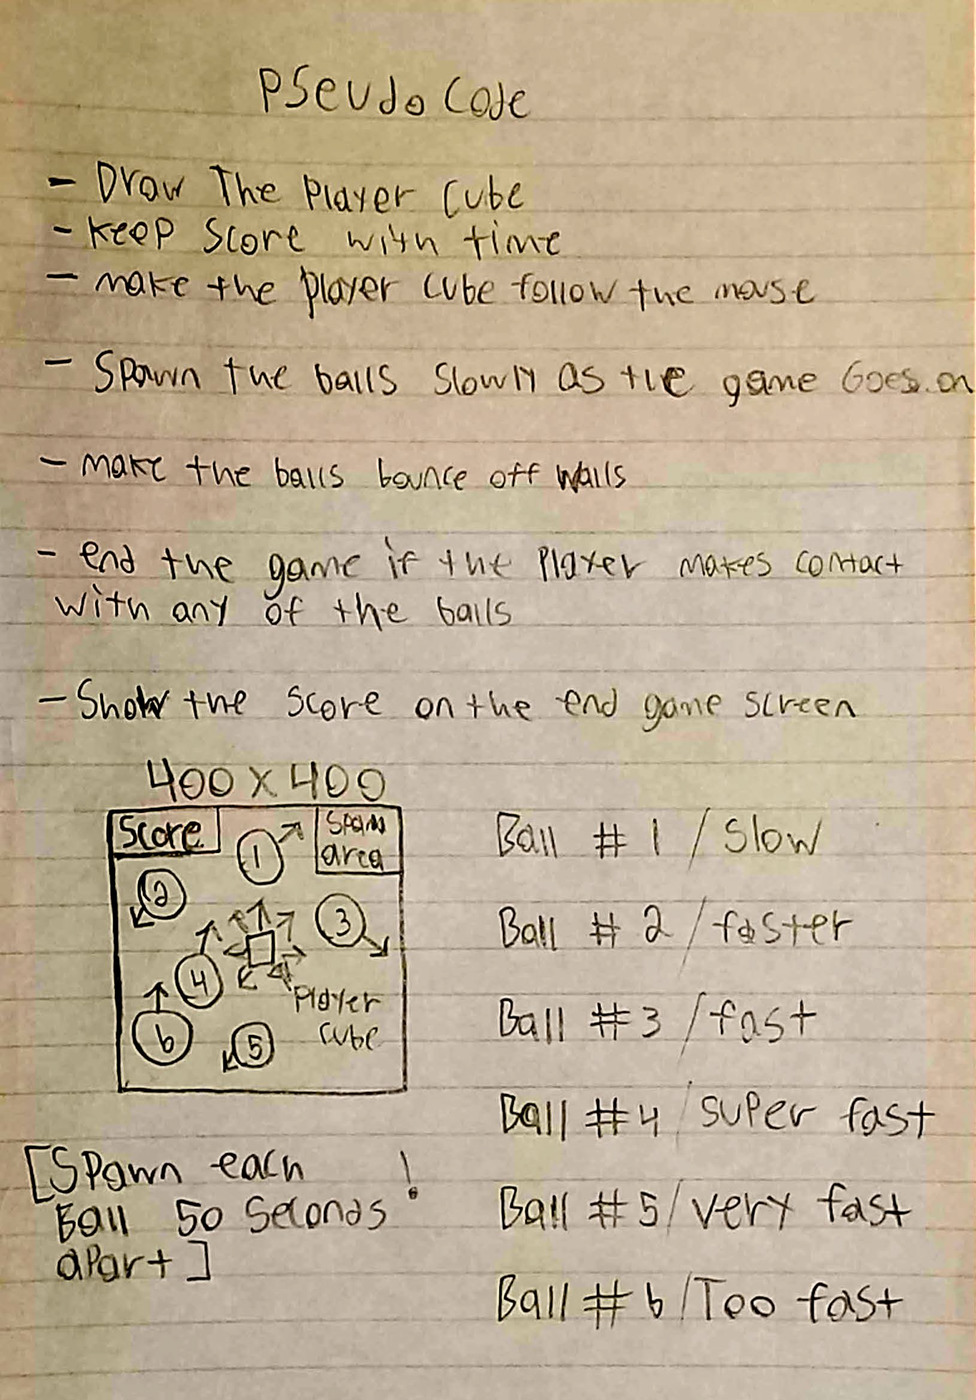 Pseudo Code
- Draw The Player Cube
- keep Score with time
- make the player cube follow the mouse
- Spawn the balls slowly as the game Goes on
- make the balls bounce off walls
- end the game if the Player makes contact
with any of the balls
- Show the score on the end game screen
400 x 400
Score
Spawn
area
1
2
3
4
Player
cube
6
5
[Spawn each !
Ball 50 Seconds
apart]
Ball # 1 / Slow
Ball # 2 / faster
Ball #3 / fast
Ball #4 / super fast
Ball #5 / very fast
Ball # 6 / Too fast